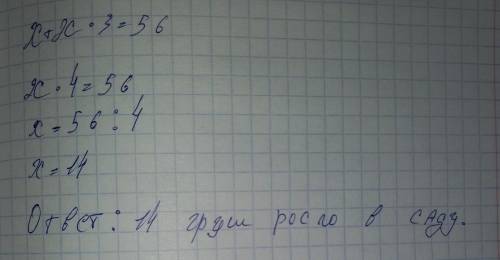 х+х·3=56
х·4=56
х=56:4
х=14
Ответ: 14 груш росло в саду.